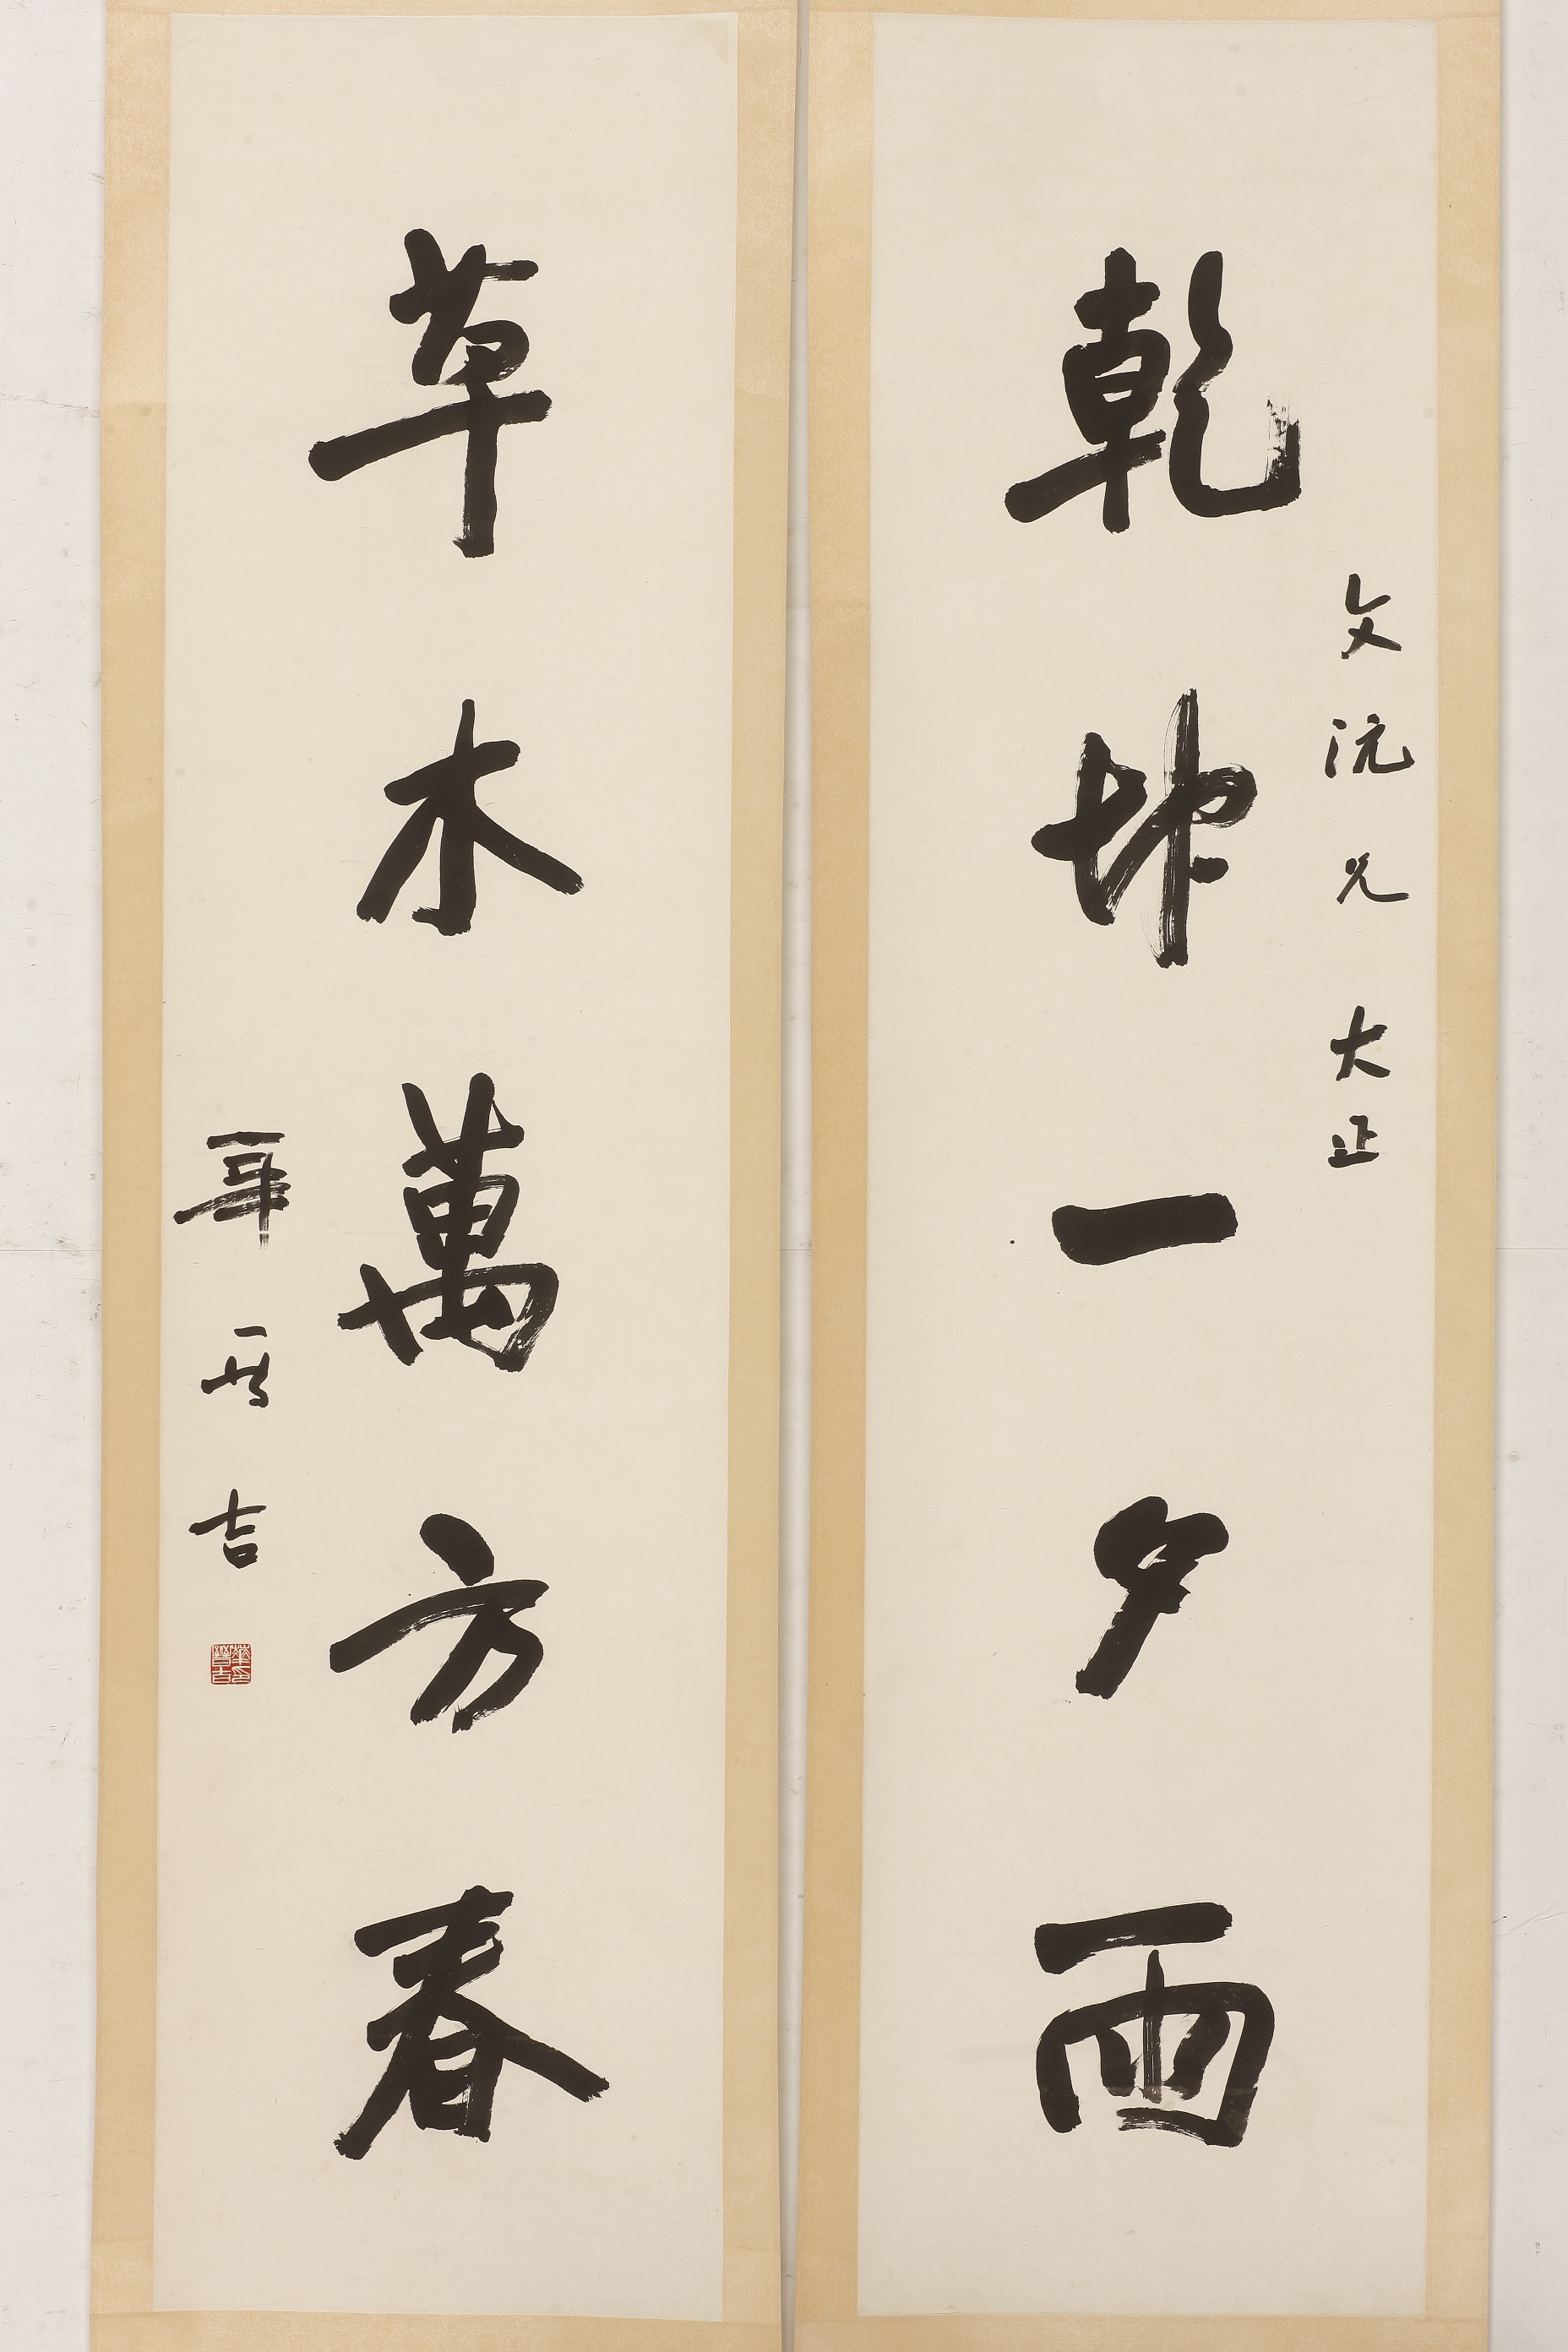 乾坤一夕雨
文沅兄 大正
草木萬方春
華晉吉